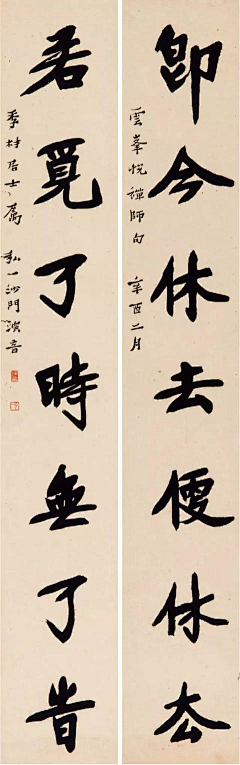 即今休去便休去
雲峯悅禪師句 辛酉二月
若覓了時無了時
季村居士屬 弘一沙門演音